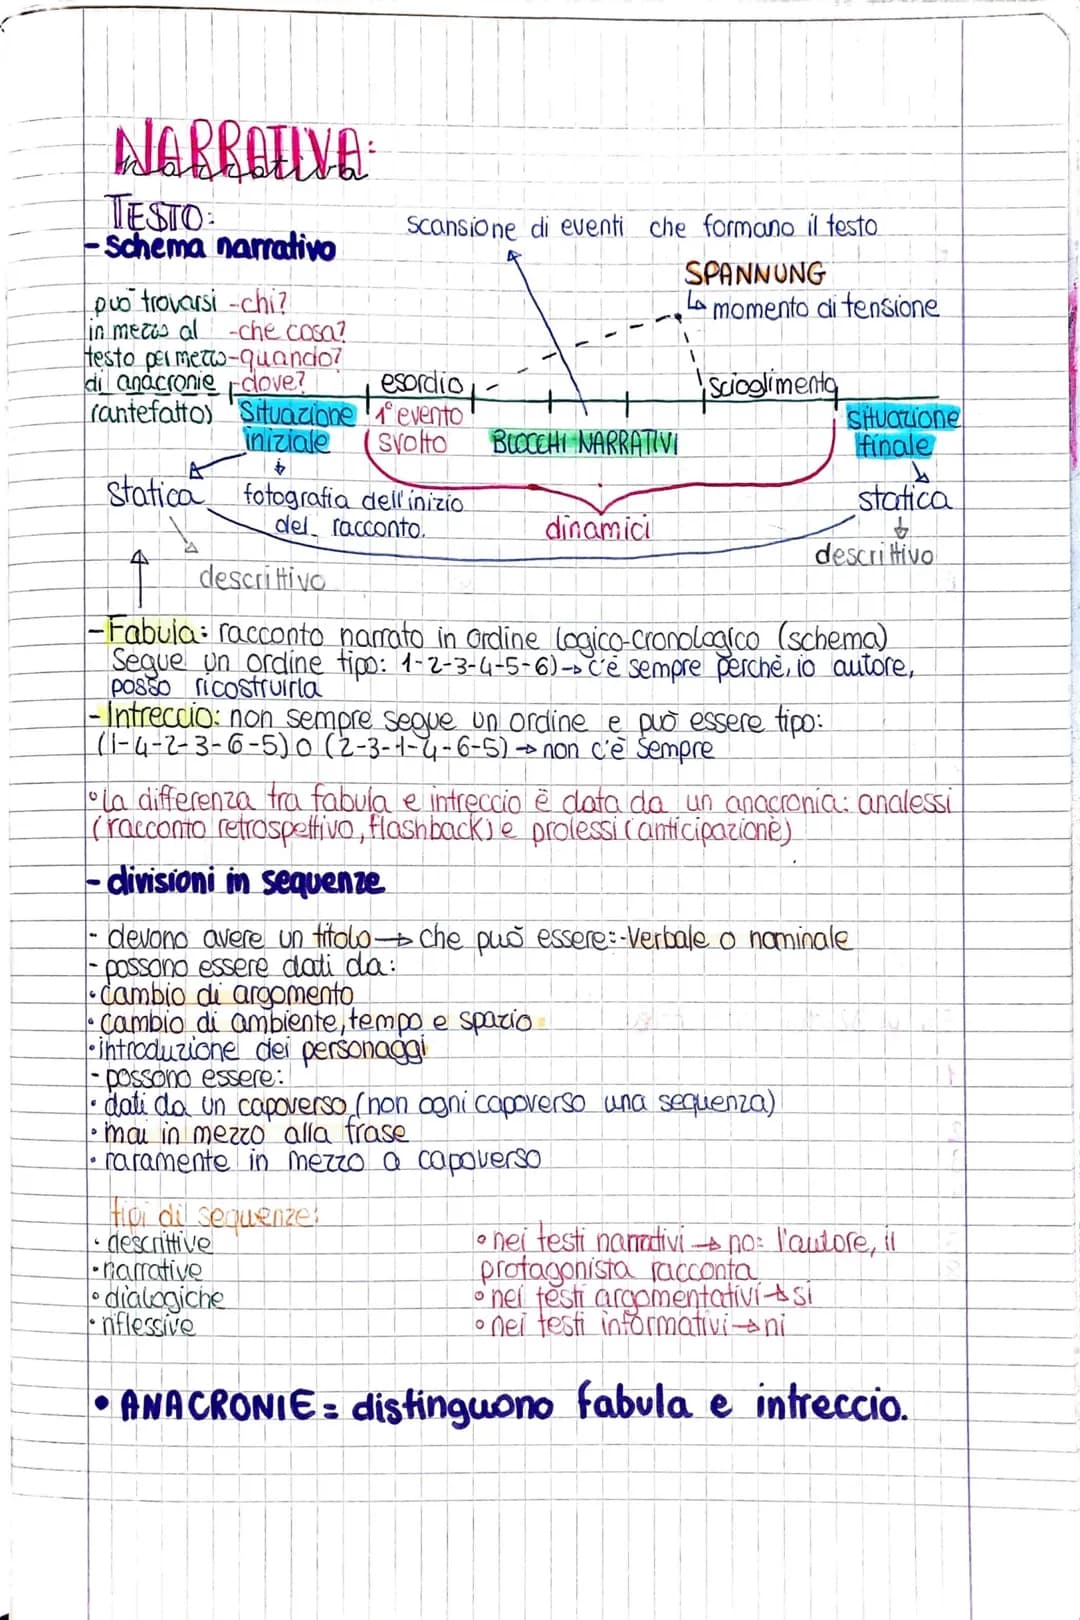 NARRATIVA:
narrativa
TESTO:
- Schema narrativo
scansione di eventi che formano il testo
SPANNUNG
↳ momento di tensione
può trovarsi
in mezzo al
testo per mezzo
di anacronie
(antefatto)
-chi?
-che cosa?
-quando?
-dove?
Situazione
iniziale
esordio
1° evento
svolto
BLOCCHI NARRATIVI
scioglimento
situazione
finale
statica
fotografia dell'inizio
del racconto.
dinamici
statica
descrittivo
descrittivo
- Fabula: racconto narrato in ordine logico-cronologico (schema)
Segue un ordine tipo: 1-2-3-4-5-6) → c'è sempre perchè, io autore,
posso ricostruirla
- Intreccio: non sempre segue un ordine e può essere tipo:
(1-4-2-3-6-5) o (2-3-1-4-6-5) → non c'è sempre
°la differenza tra fabula e intreccio è data da un anacronia: analessi
(racconto retrospettivo, flashback) e prolessi (anticipazione)
- divisioni in sequenze
- devono avere un titolo → che può essere:-Verbale o nominale
- possono essere dati da:
• cambio di argomento
• cambio di ambiente, tempo e spazio
• introduzione dei personaggi
- possono essere:
• dati da un capoverso (non ogni capoverso una sequenza)
• mai in mezzo alla frase
• raramente in mezzo a capoverso
tipi di sequenze:
• descrittive
• narrative
• dialogiche
• riflessive
° nei testi narrativi → no: l'autore, il
protagonista racconta
° nei testi argomentativi → si
° nei testi informativi → ni
• ANACRONIE = distinguono fabula e intreccio.